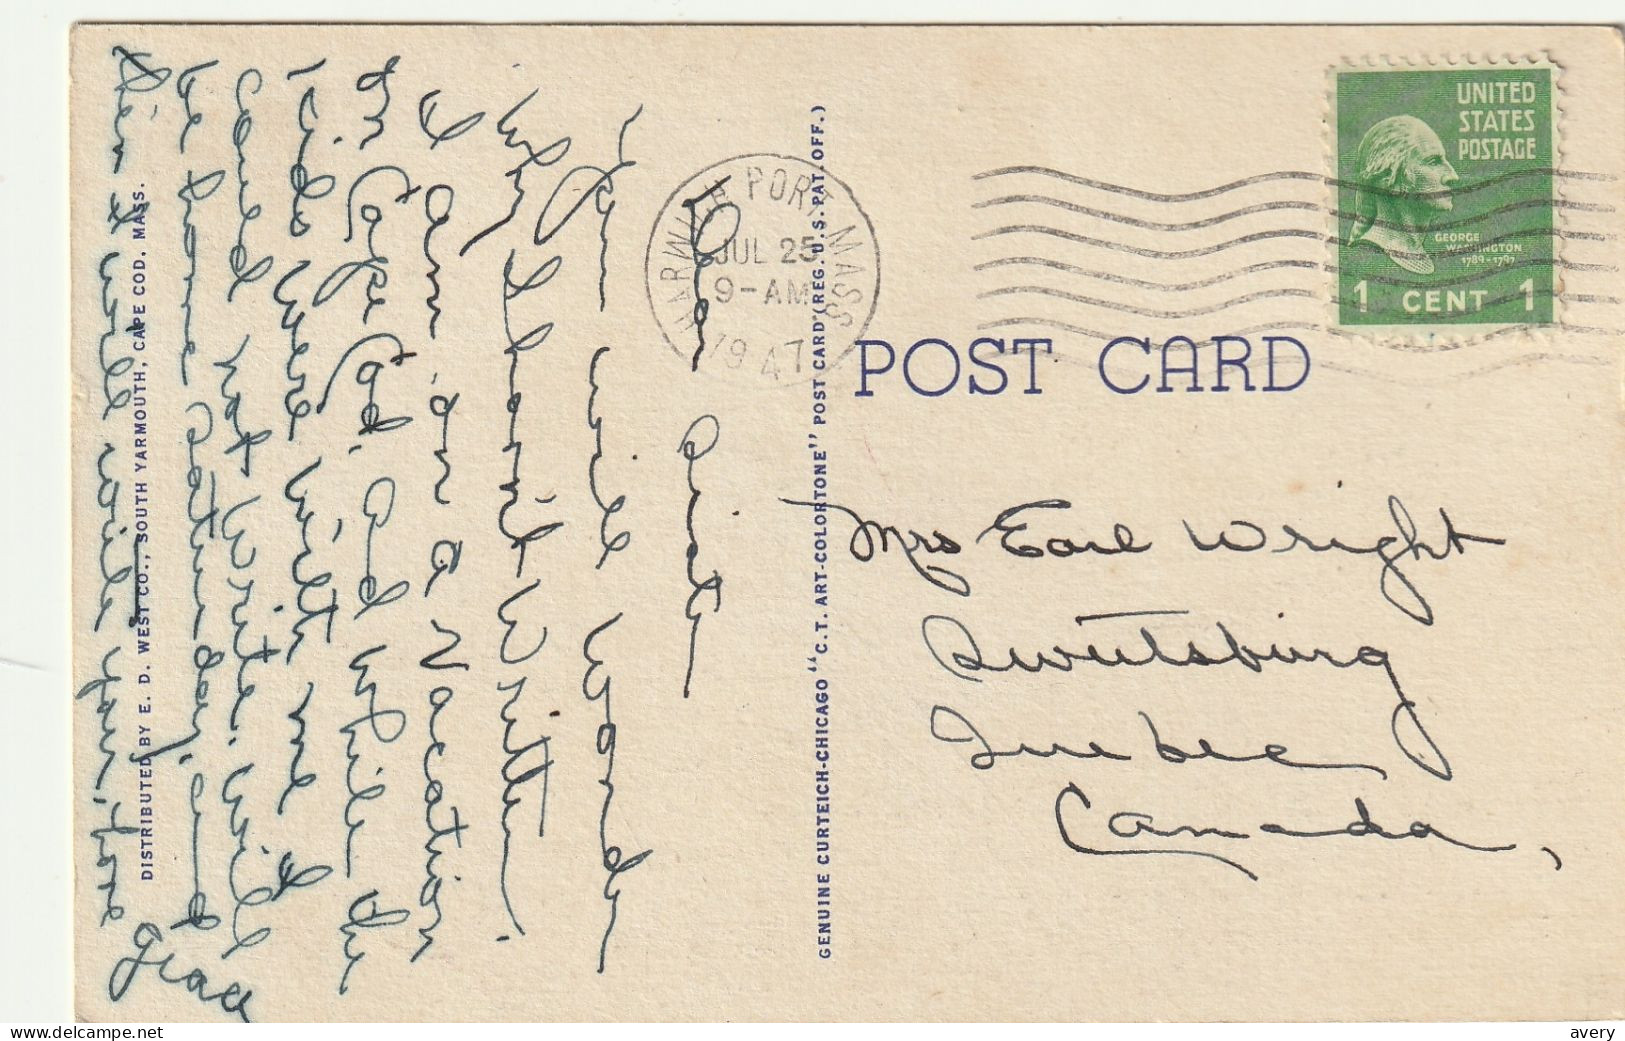 Dear Sister
You will wonder
why I haven't written.
I am on a vacation
on Cape Cod, and while the
kids were with me I
could not write. Will
be home Saturday, and
then I will write you, Love
Grace
HARWICH PORT MASS
JUL 25
9-AM
1947
UNITED
STATES
POSTAGE
GEORGE
WASHINGTON
1789-1797
1 CENT 1
POST CARD
Mrs Earl Wright
Sweetsburg
Quebec
Canada,
GENUINE CURTEICH-CHICAGO "C.T. ART-COLORTONE" POST CARD (REG. U.S. PAT. OFF.)
DISTRIBUTED BY E. D. WEST CO., SOUTH YARMOUTH, CAPE COD, MASS.
www.delcampe.net
avery